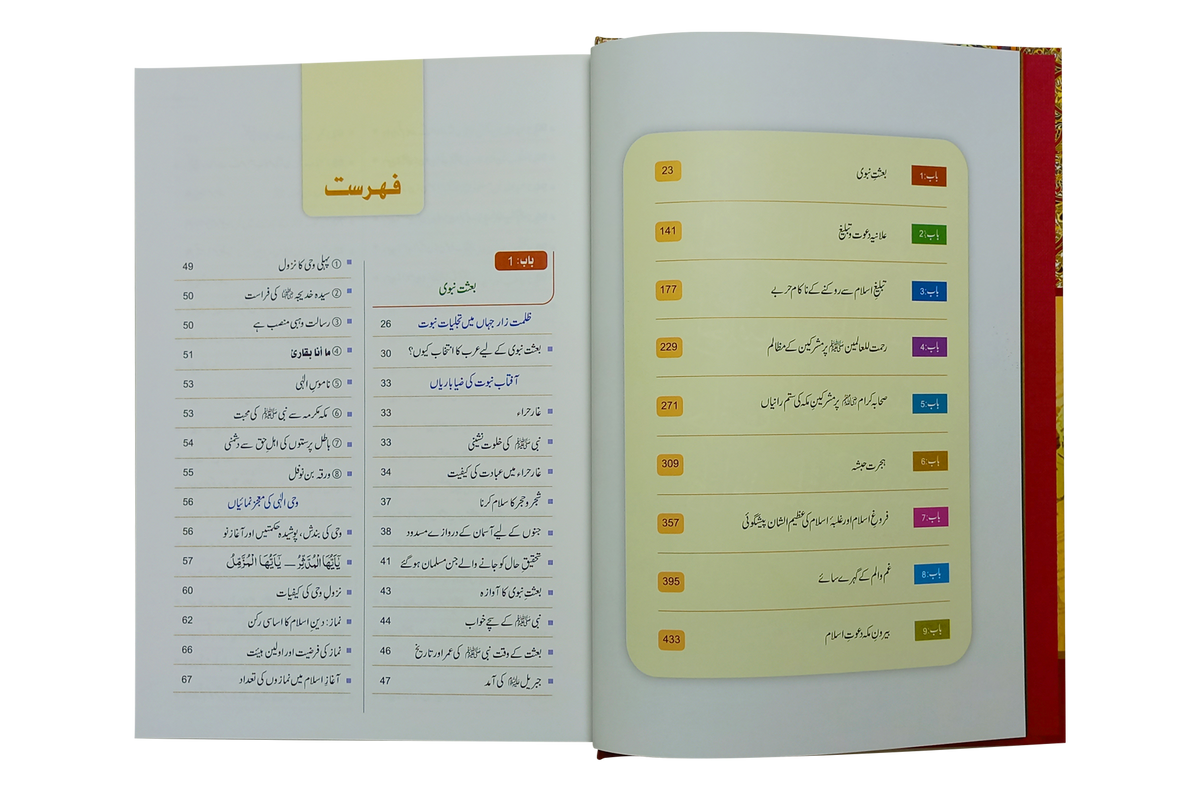 باب:1 بعثتِ نبوی 23
باب:2 علانیہ دعوت و تبلیغ 141
باب:3 تبلیغِ اسلام سے روکنے کے ناکام حربے 177
باب:4 رحمت للعالمین ﷺ پر مشرکین کے مظالم 229
باب:5 صحابہ کرام رضی اللہ عنہم پر مشرکینِ مکہ کی ستم رانیاں 271
باب:6 ہجرتِ حبشہ 309
باب:7 فروغِ اسلام اور غلبۂ اسلام کی عظیم الشان پیشگوئی 357
باب:8 غم و الم کے گہرے سائے 395
باب:9 بیرونِ مکہ دعوتِ اسلام 433
فہرست
باب: 1
بعثت نبوی
ظلمت زارِ جہاں میں تجلیات نبوت 26
بعثت نبوی کے لیے عرب کا انتخاب کیوں؟ 30
آفتاب نبوت کی ضیا باریاں 33
غارِ حراء 33
نبی ﷺ کی خلوت نشینی 33
غارِ حراء میں عبادت کی کیفیت 34
شجر و حجر کا سلام کرنا 37
جنوں کے لیے آسمان کے دروازے مسدود 38
تحقیق حال کو جانے والے جن مسلمان ہو گئے 41
بعثتِ نبوی کا آوازہ 43
نبی ﷺ کے سچے خواب 44
بعثت کے وقت نبی ﷺ کی عمر اور تاریخ 46
جبریل علیہ السلام کی آمد 47
① پہلی وحی کا نزول 49
② سیدہ خدیجہ رضی اللہ عنہا کی فراست 50
③ رسالت وہبی منصب ہے 50
④ ما أنا بقارئ 51
⑤ ناموسِ الٰہی 53
⑥ مکہ مکرمہ سے نبی ﷺ کی محبت 53
⑦ باطل پرستوں کی اہلِ حق سے دشمنی 54
⑧ ورقہ بن نوفل 55
وحی الٰہی کی معجز نمائیاں 56
وحی کی بندش، پوشیدہ حکمتیں اور آغازِ نو 56
يٰٓاَيُّهَا الْمُدَّثِّرُ — يٰٓاَيُّهَا الْمُزَّمِّلُ 57
نزولِ وحی کی کیفیات 60
نماز: دینِ اسلام کا اساسی رکن 62
نماز کی فرضیت اور اولین ہیئت 66
آغازِ اسلام میں نمازوں کی تعداد 67